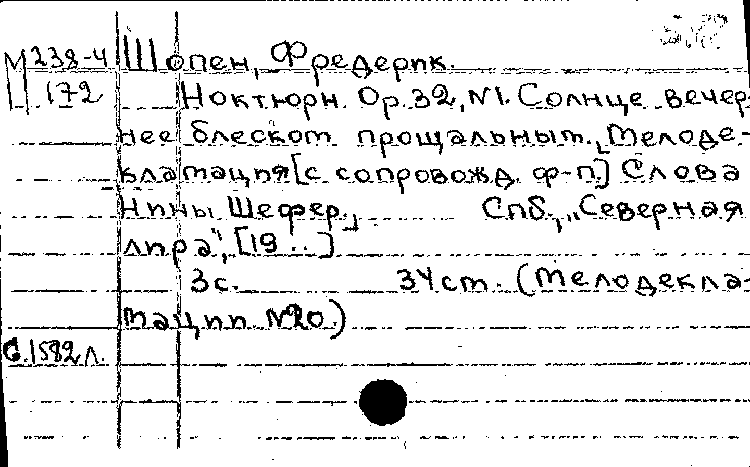 М238-4 Шопен, Фредерик.
Ш 172 Ноктюрн. Op.32, №1. Солнце вечер-
нее блеском прощальным. [Мелоде-
кламация [с сопровожд. ф-п.] Слова
Нины Шефер.] Спб, „Северная
лира", [19 . .]
3с. 34 см. (Мелодекла-
мации №20.)
С.1582л.